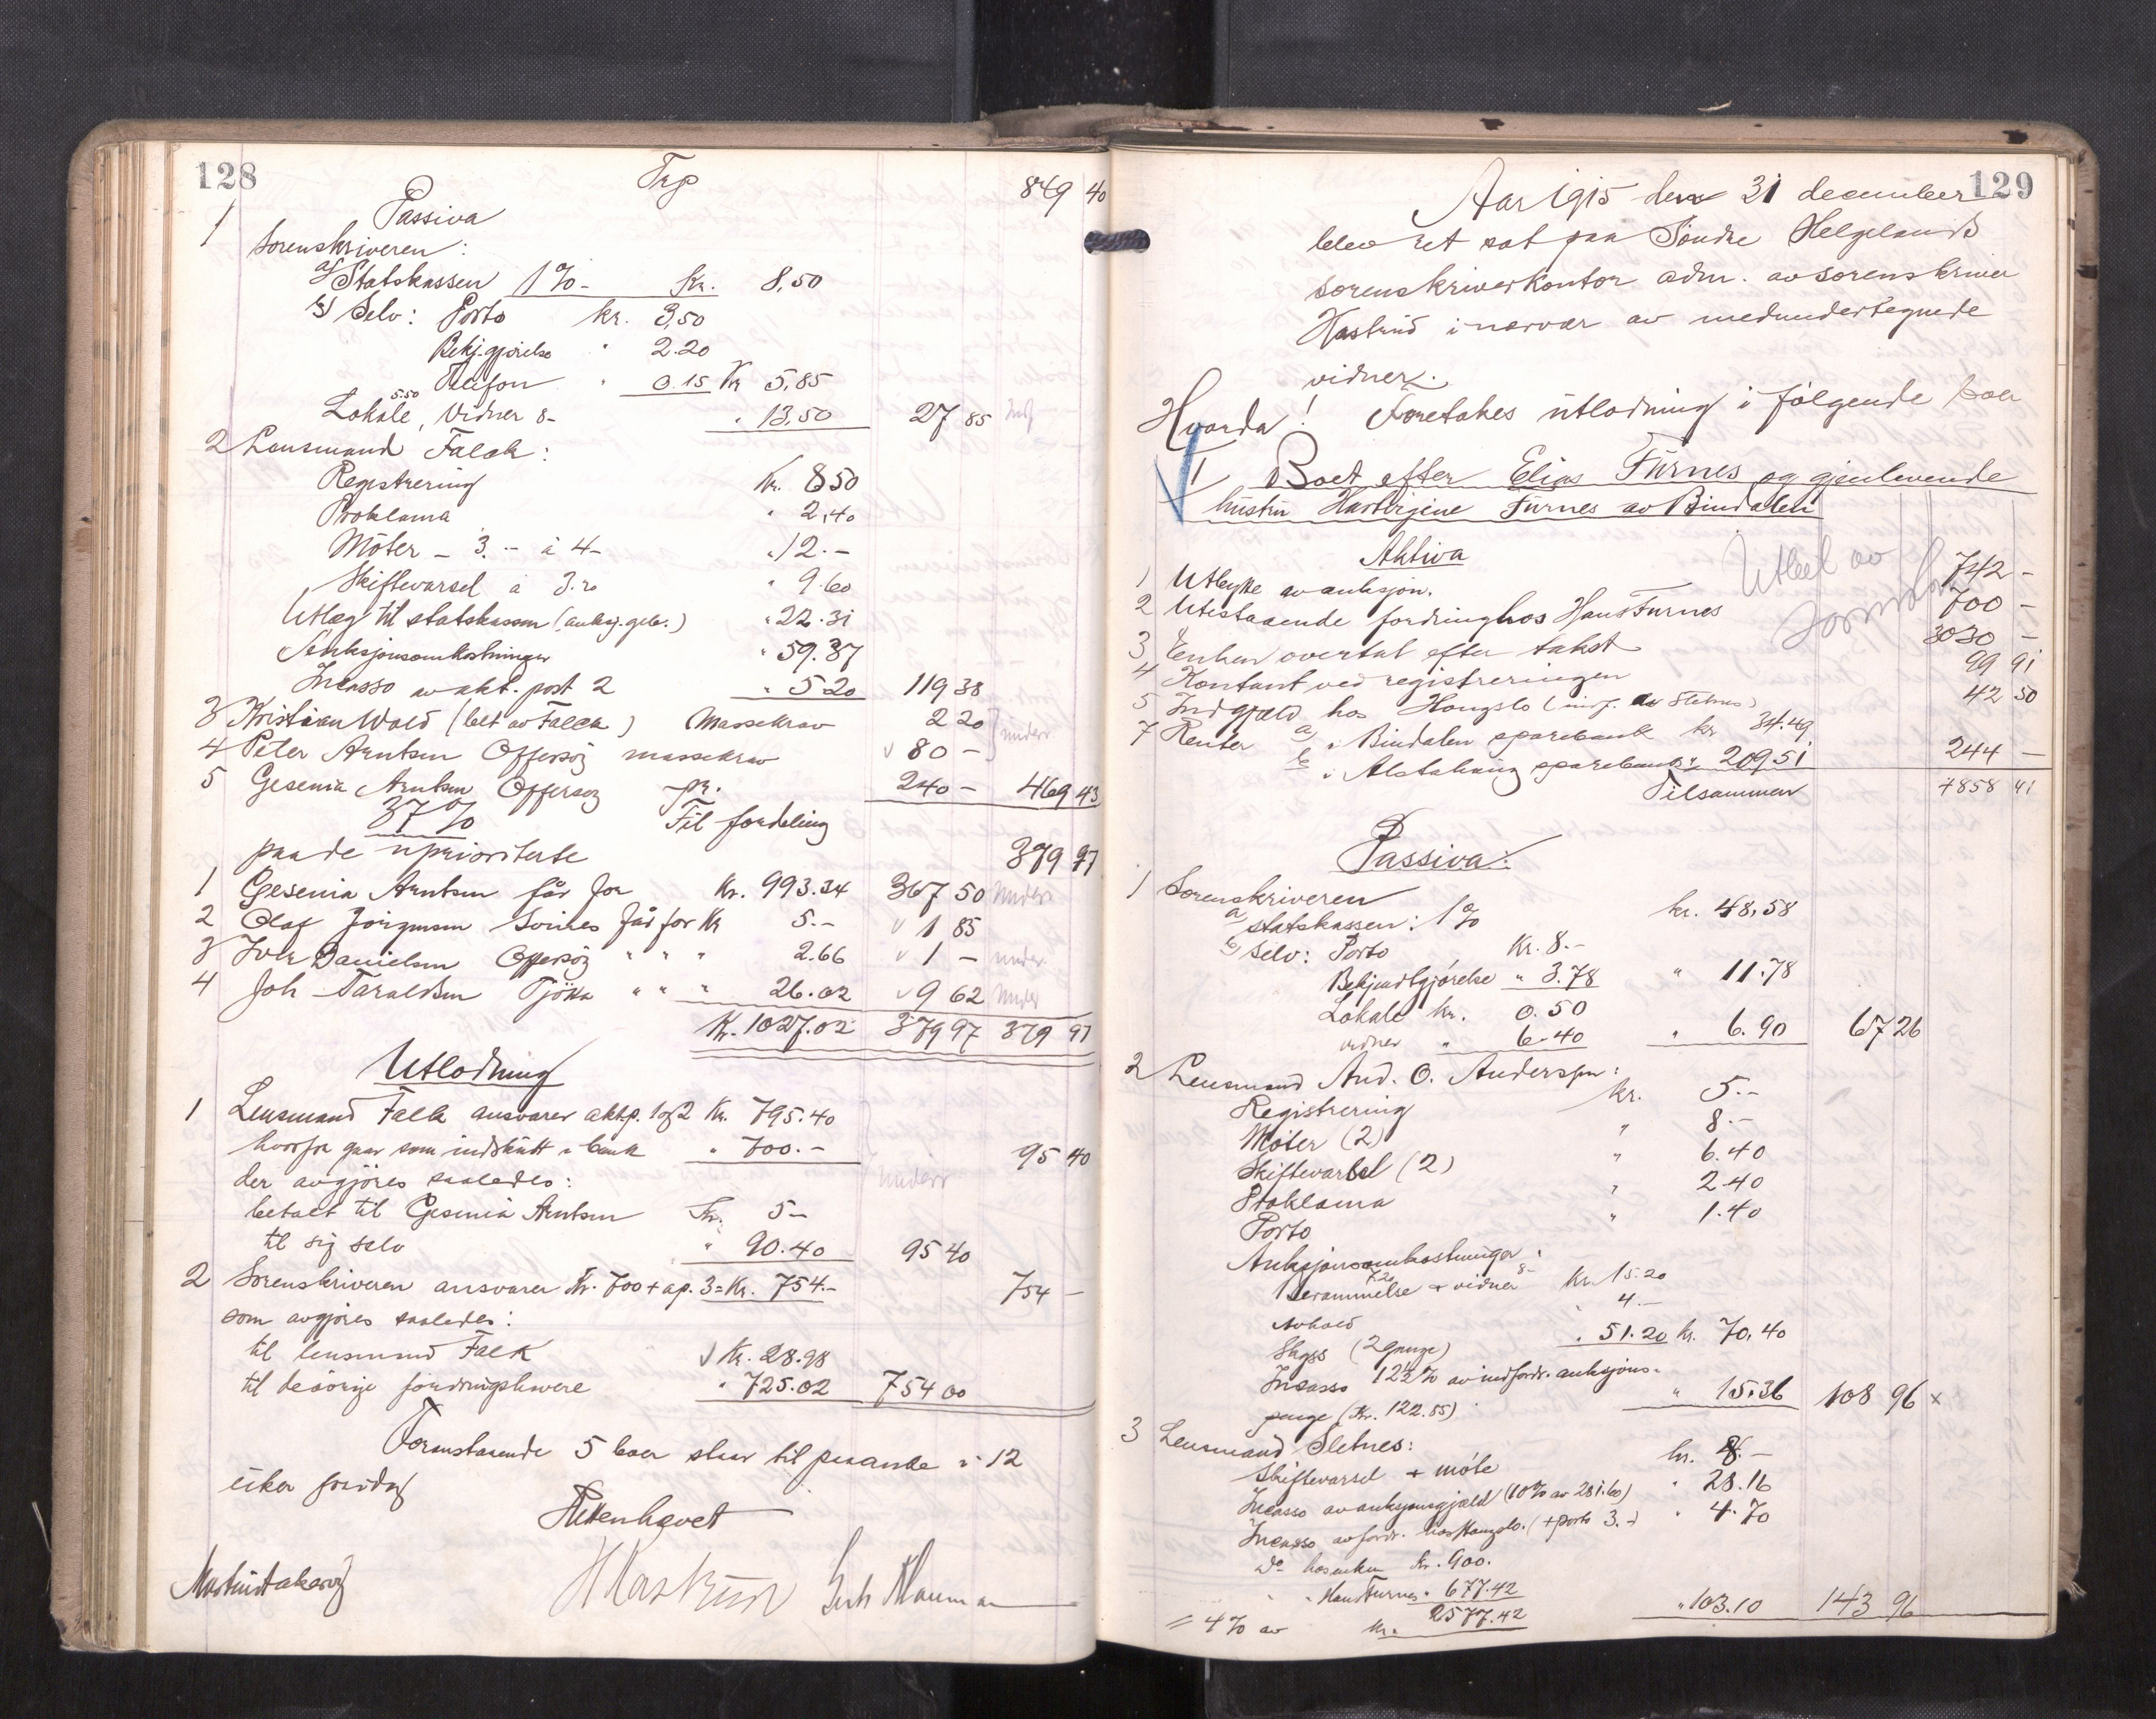 128
Trp 849 40
Passiva
1 Sorenskriveren:
a) Statskassen 1% - Kr. 8,50
b) Selv: Porto kr. 3,50
Bekj.gjørelse " 2.20
Telefon " 0.15 Kr 5,85
Lokale 5.50, Vidner 8- " 13,50 27 85
2 Lensmand Falck:
Registrering Kr. 8 50
Proklama " 2,40
Möter - 3. -- à 4- " 12.-
Skiftevarsel à 3.20 " 9.60
Utlæg til statskassen (auksj.geb.) " 22.31
Auksjonsomkostninger " 59.37
Incasso av akt. post 2 " 5 20 119 38
3 Kristian Wold (bet av Falck) Massekrav 2 20
4 Peter Arntsen Offersöj massekrav 80 -
5 Gesenia Arntsen Offersöj pr. 240 - 469 43
37% Til fordeling
paa de uprioriterte 379 97
1 Gesenia Arntsen får for Kr. 993.34 367 50 under
2 Olaf Jörgensen Soines får for Kr 5.- 1 85
3 Danielsen Offersöj " " " 2.66 1 - under
4 Joh Taraldsen Tjötta " " " 26.02 9 62 under
Kr. 1027.02 379 97 379 97
Utlodning
1 Lensmand Falck ansvarer aktp. 1 og 2 Kr. 795.40
hvorfra gaar som indskutt i bank " 700.- 95 40
der avgjöres saaledes: under
betalt til Gesenia Arntsen Kr. 5-
til sig selv " 90.40 95 40
2 Sorenskriveren ansvarer Kr. 700 + ap. 3 = Kr. 754.- 754 -
som avgjöres saaledes:
til lensmand Falck Kr. 28.98
til de övrige fordringshavere " 725.02 754 00
Foranstaaende 5 boer staar til paaanke i 12
uker fra idag
Retten hævet
HHastrud
129
Aar 1915 den 31 december
blev ret sat paa Söndre Helgelands
sorenskriverkontor adm. av sorenskriver
Hastrud i nærvær av medundertegnede
vidner.
Hvorda! Foretokes utlodning i følgende boer
1 Boet efter Elias Furnes og gjenlevende
hustru Furnes av Bindalen
Aktiva
1 Utbytte av auksjon. 742 -
2 Utestaaende fordring hos Hans Furnes 700 -
3 Enken overtat efter takst 3030 -
4 Kontant ved registreringen 99 91
5 Indgjæld hos Hongslo (inj. av Sletnes) 42 50
7 Renter a) i Bindalen sparebank kr 34.49
b) i Alstahaug sparebank " 209 51 244 -
Tilsammen 4858 41
Passiva:
1 Sorenskriveren
a statskassen: 1% kr. 48,58
b) Selv: Porto Kr. 8.-
Bekjendtgjörelse " 3.78 " 11.78
Lokale kr. 0.50
vidner " 6.40 " 6.90 67 26
2 Lensmand And. O. Anderssen:
Registrering kr. 5.-
Möter (2) " 8.-
Skiftevarsel (2) " 6.40
Proklama " 2.40
Porto " 1.40
Auksjonsomkostninger:
berammelse 7.20 + vidner 8- Kr. 15.20
Avhold " 4.-
Skyss (2 gange) " 51.20 kr. 70,40
Incasso 12½% av indfordr. auksjons-
penge (Kr. 122.85) " 15.36 108 96 x
3 Lensmand Sletnes:
Skiftevarsel + möte kr. 8.-
Incasso av auksjonsgjæld (10% av 281.60) " 28.16
Incasso av fordr. hos Hongslo. (+ porto 3.-) " 4.70
Do hos enken Kr. 900.
" " Hans Furnes " 677.42
= 4% av kr. 2577.42 " 103.10 143 96